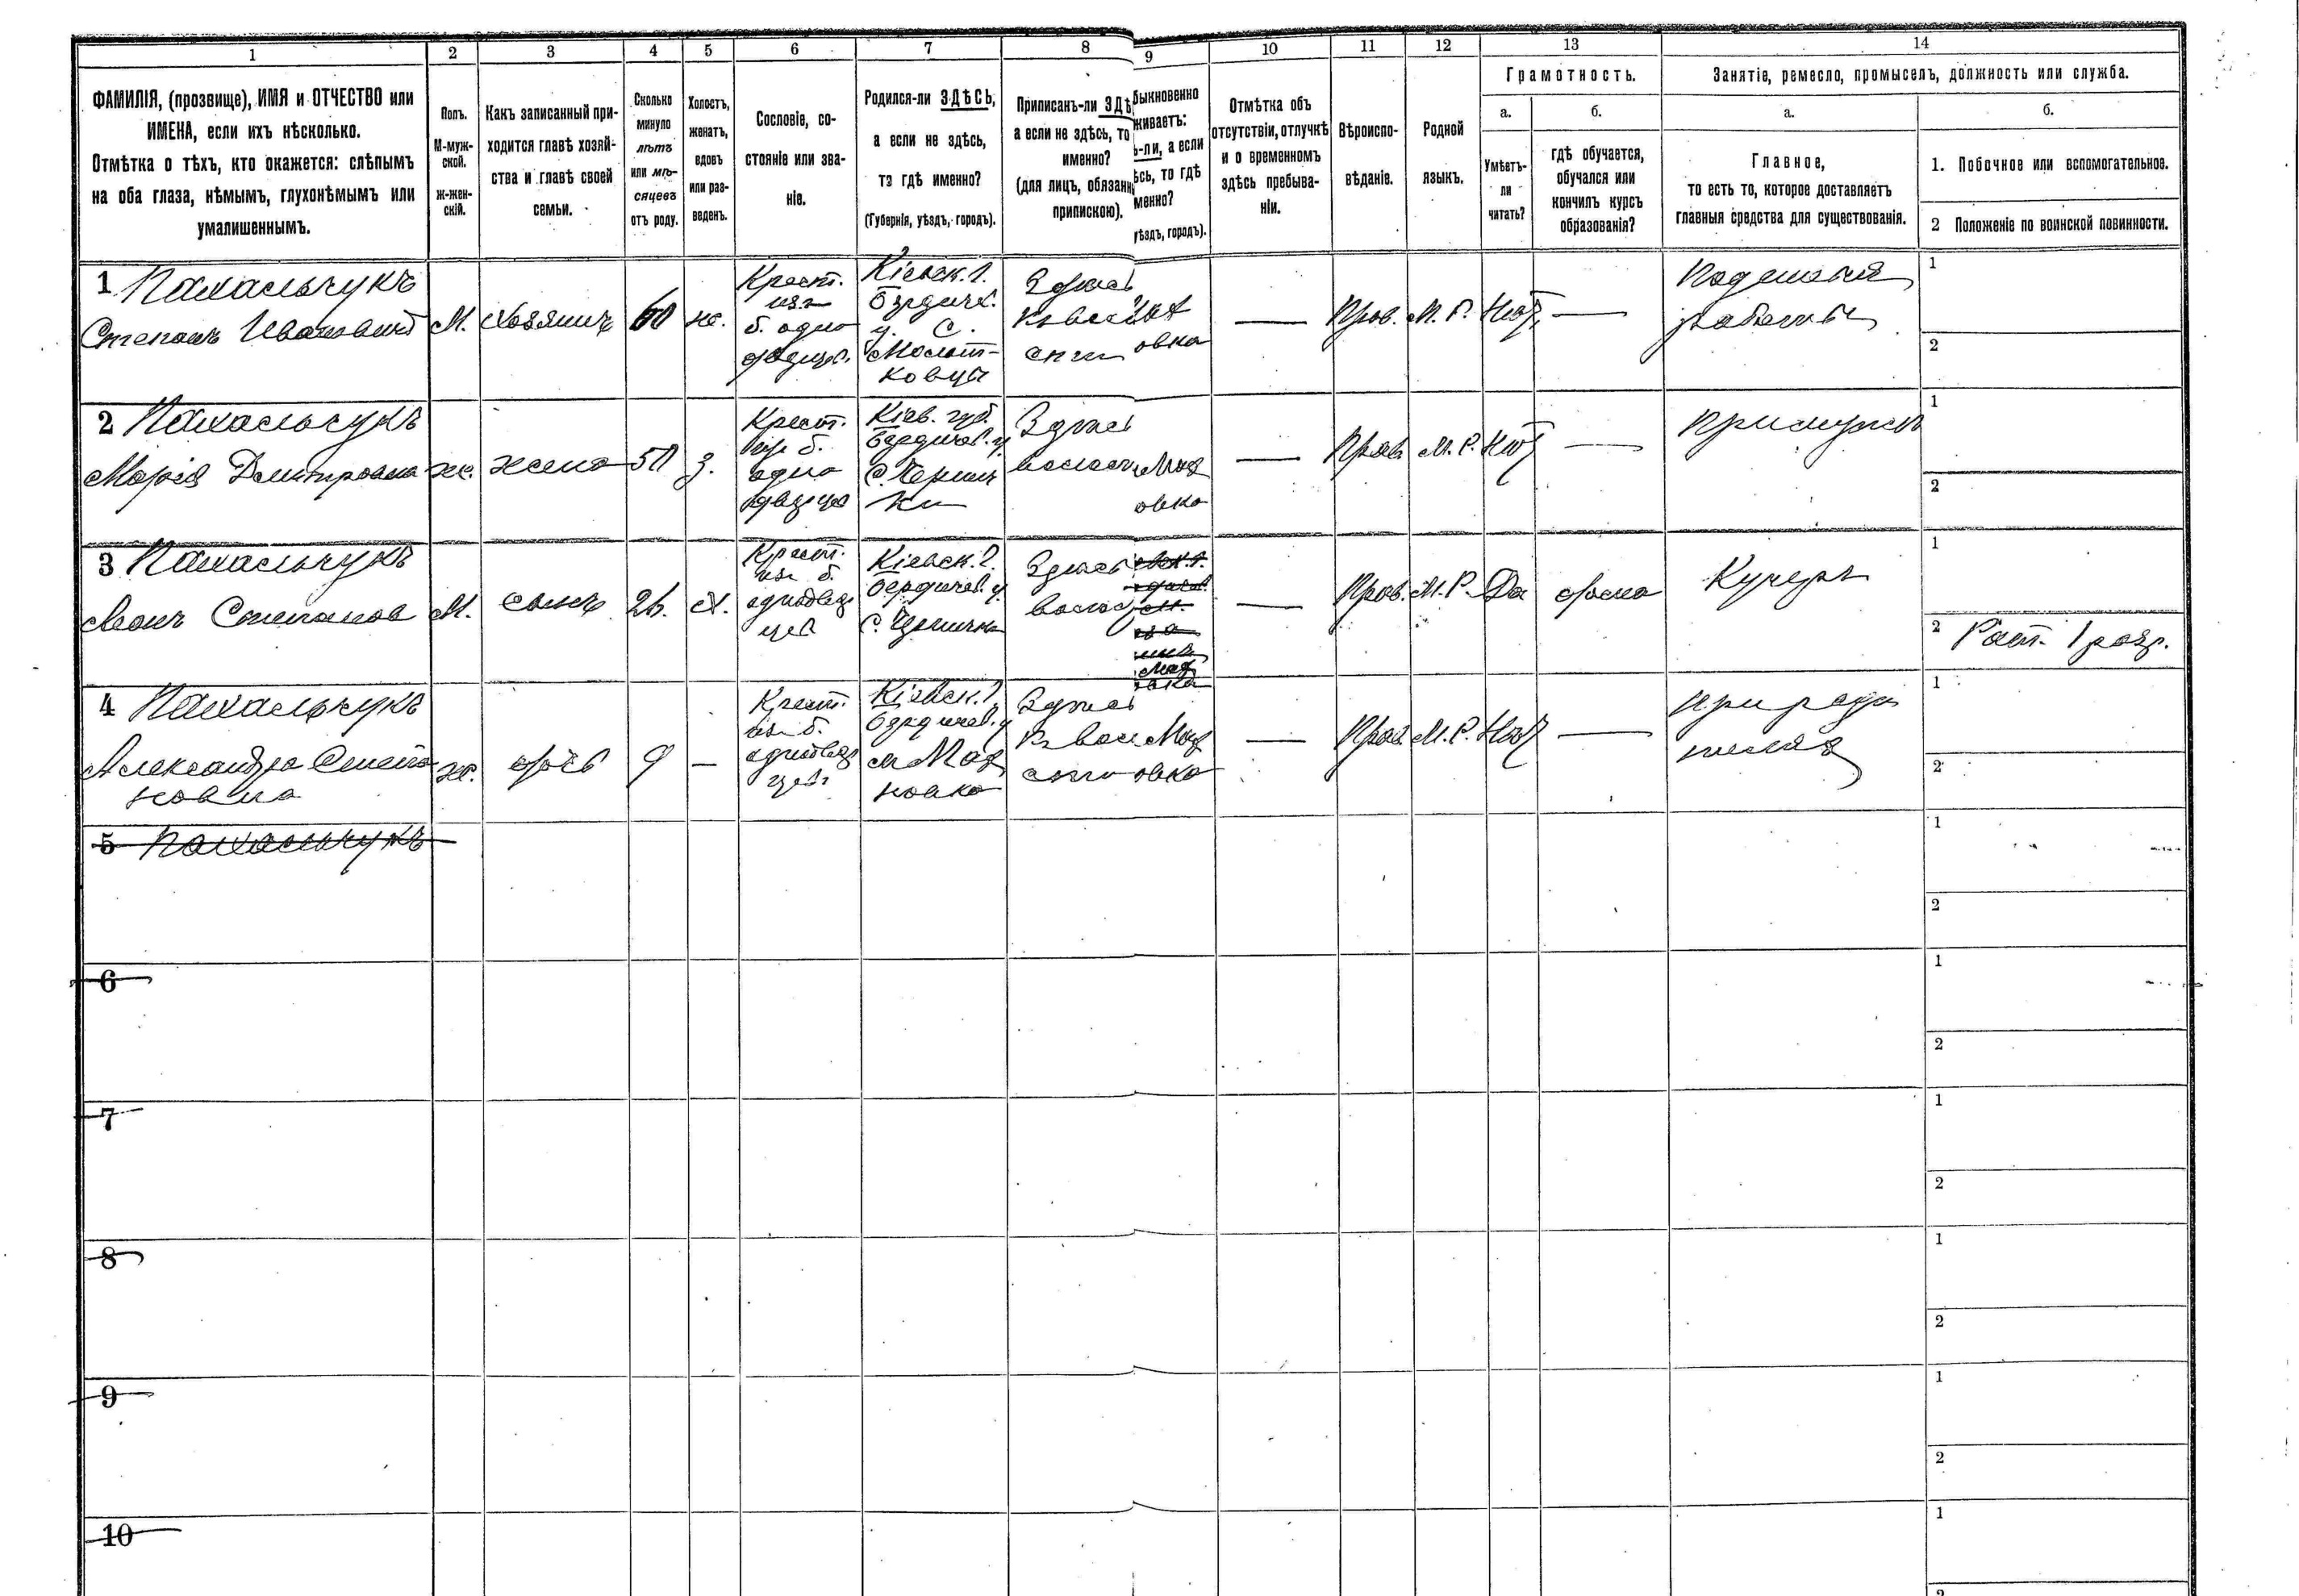 1 2 3 4 5 6 7 8 9 10 11 12 13 14
ФАМИЛІЯ, (прозвище), ИМЯ и ОТЧЕСТВО или
ИМЕНА, если ихъ нѣсколько.
Отмѣтка о тѣхъ, кто окажется: слѣпымъ
на оба глаза, нѣмымъ, глухонѣмымъ или
умалишеннымъ.
Полъ.
М-муж-
ской.
ж-жен-
скій.
Какъ записанный при-
ходится главѣ хозяй-
ства и главѣ своей
семьи.
Сколько
минуло
лѣтъ
или мѣ-
сяцевъ
отъ роду.
Холостъ,
женатъ,
вдовъ
или раз-
веденъ.
Сословіе, со-
стояніе или зва-
ніе.
Родился-ли ЗДѢСЬ,
а если не здѣсь,
то гдѣ именно?
(Губернія, уѣздъ, городъ).
Приписанъ-ли ЗДѢ
а если не здѣсь, то
именно?
(для лицъ, обязанн
припискою).
быкновенно
живаетъ:
ь-ли, а если
ѣсь, то гдѣ
менно?
уѣздъ, городъ).
Отмѣтка объ
отсутствіи, отлучкѣ
и о временномъ
здѣсь пребыва-
ніи.
Вѣроиспо-
вѣданіе.
Родной
языкъ.
Грамотность.
а.
Умѣетъ-
ли
читать?
б.
гдѣ обучается,
обучался или
кончилъ курсъ
образованія?
Занятіе, ремесло, промыселъ, должность или служба.
а.
Главное,
то есть то, которое доставляетъ
главныя средства для существованія.
б.
1. Побочное или вспомогательное.
2 Положеніе по воинской повинности.
1 Пахальчукъ
Степанъ Ивановичъ
М.
Хозяинъ
60
ж.
Крест.
изъ
б. одно
дворц.
Кіевск. г.
Бердичев.
у. С.
Молот-
ковцы
Здѣсь
въ воло
сти
Мах
овка
—
Прав.
М. Р.
Нѣт
—
Поденныя
работы
1
2
2 Пахальчукъ
Марія Дмитровна
ж.
жена
50
з.
Крест.
изъ б.
одно
дворцев
Кіев. губ.
Бердичев. у.
Здѣсь
волост
Мах
овка
—
Прав.
М. Р.
Нѣт
—
При мужѣ
1
2
3 Пахальчукъ
Иванъ Степанов
М.
сынъ
26.
Х.
Крест.
изъ б.
однодвор
цев
Кіевск. г.
Бердичев. у.
Здѣсь
волос
Мах
овка
—
Прав.
М. Р.
Да
дома
Кучеръ
1
2 Рат. 1 разр.
4 Пахальчукъ
Александра Степа
новна
ж.
дочь
9
—
Крест.
изъ б.
однодвор
цевъ
Кіевск. г.
Бердичев. у
м Мах
новка
Здѣсь
въ воло
сти
Мах
овка
—
Прав.
М. Р.
Нѣт
—
При роди
теляхъ
1
2
5 Пахальчукъ
1
2
6
1
2
7
1
2
8
1
2
9
1
2
10
1
2